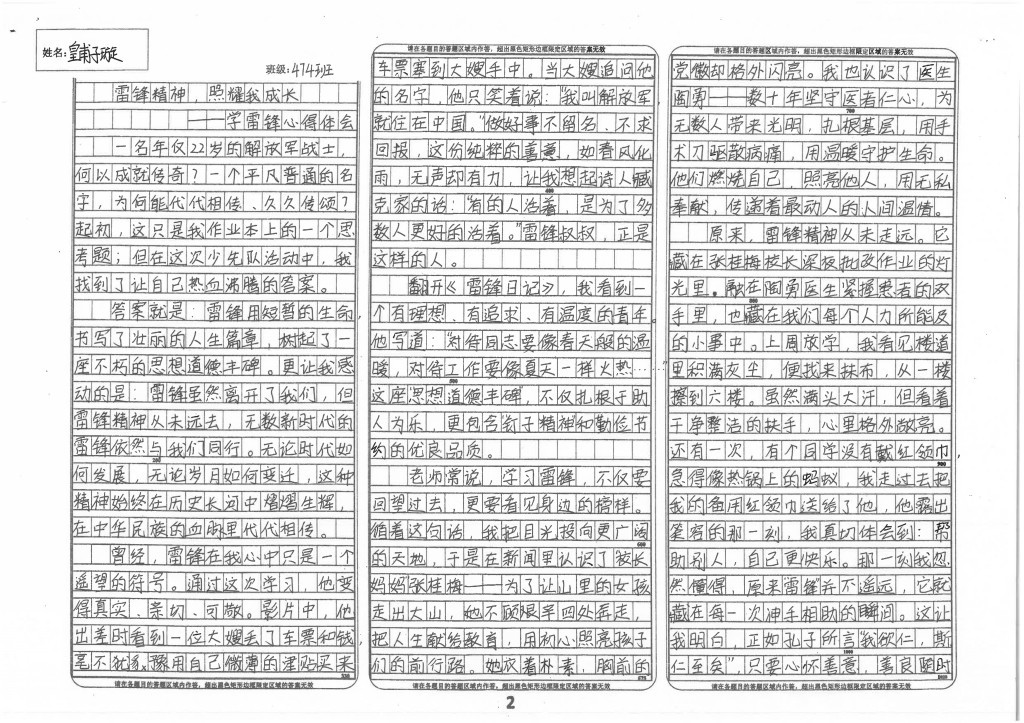 姓名：皇甫子璇
班级：474班
雷锋精神，照耀我成长
——学雷锋心得体会
一名年仅22岁的解放军战士，
何以成就传奇？一个平凡普通的名
字，为何能代代相传、久久传颂？
起初，这只是我作业本上的一个思
考题；但在这次少先队活动中，我
找到了让自己热血沸腾的答案。
答案就是：雷锋用短暂的生命，
书写了壮丽的人生篇章，树起了一
座不朽的思想道德丰碑。更让我感
动的是：雷锋虽然离开了我们，但
雷锋精神从未远去，无数新时代的
雷锋依然与我们同行。无论时代如
200
何发展，无论岁月如何变迁，这种
精神始终在历史长河中熠熠生辉，
在中华民族的血脉里代代相传。
曾经，雷锋在我心中只是一个
遥望的符号。通过这次学习，他变
得真实、亲切、可敬。影片中，他
出差时看到一位大嫂丢了车票和钱，
毫不犹豫用自己微薄的津贴买来
330
请在各题目的答题区域内作答，超出黑色矩形边框限定区域的答案无效
请在各题目的答题区域内作答，超出黑色矩形边框限定区域的答案无效
车票塞到大嫂手中。当大嫂追问他
的名字，他只笑着说：“我叫解放军，
就住在中国。”做好事不留名、不求
回报，这份纯粹的善意，如春风化
雨，无声却有力，让我想起诗人臧
400
克家的话：“有的人活着，是为了多
数人更好的活着。”雷锋叔叔，正是
这样的人。
翻开《雷锋日记》，我看到一
个有理想、有追求、有温度的青年。
他写道：“对待同志要像春天般的温
暖，对待工作要像夏天一样火热……”
500
这座“思想道德丰碑”，不仅扎根于助
人为乐，更包含“钉子精神”和勤俭节
约的优良品质。
老师常说，学习雷锋，不仅要
回望过去，更要看见身边的榜样。
循着这句话，我把目光投向更广阔
600
的天地，于是在新闻里认识了校长
妈妈张桂梅——为了让山里的女孩
走出大山，她不顾艰辛四处奔走，
把人生献给教育，用初心照亮孩子
们的前行路。她衣着朴素，胸前的
请在各题目的答题区域内作答，超出黑色矩形边框限定区域的答案无效
请在各题目的答题区域内作答，超出黑色矩形边框限定区域的答案无效
党徽却格外闪亮。我也认识了医生
陶勇——数十年坚守医者仁心，为
700
无数人带来光明，扎根基层，用手
术刀驱散病痛，用温暖守护生命。
他们燃烧自己，照亮他人，用无私
奉献，传递着最动人的人间温情。
原来，雷锋精神从未走远。它
藏在张桂梅校长深夜批改作业的灯
光里。融在陶勇医生紧握患者的双
800
手里，也藏在我们每个人力所能及
的小事中。上周放学，我看见楼道
里积满灰尘，便找来抹布，从一楼
擦到六楼。虽然满头大汗，但看着
干净整洁的扶手，心里格外敞亮。
还有一次，有个同学没有戴红领巾，
900
急得像热锅上的蚂蚁，我走过去把
我的备用红领巾送给了他，他露出
笑容的那一刻，我真切体会到：帮
助别人，自己更快乐。那一刻我忽
然懂得，原来雷锋并不遥远，它就
藏在每一次伸手相助的瞬间。这让
我明白，正如孔子所言“我欲仁，斯
1000
仁至矣”，只要心怀善意，善良随时
请在各题目的答题区域内作答，超出黑色矩形边框限定区域的答案无效
2